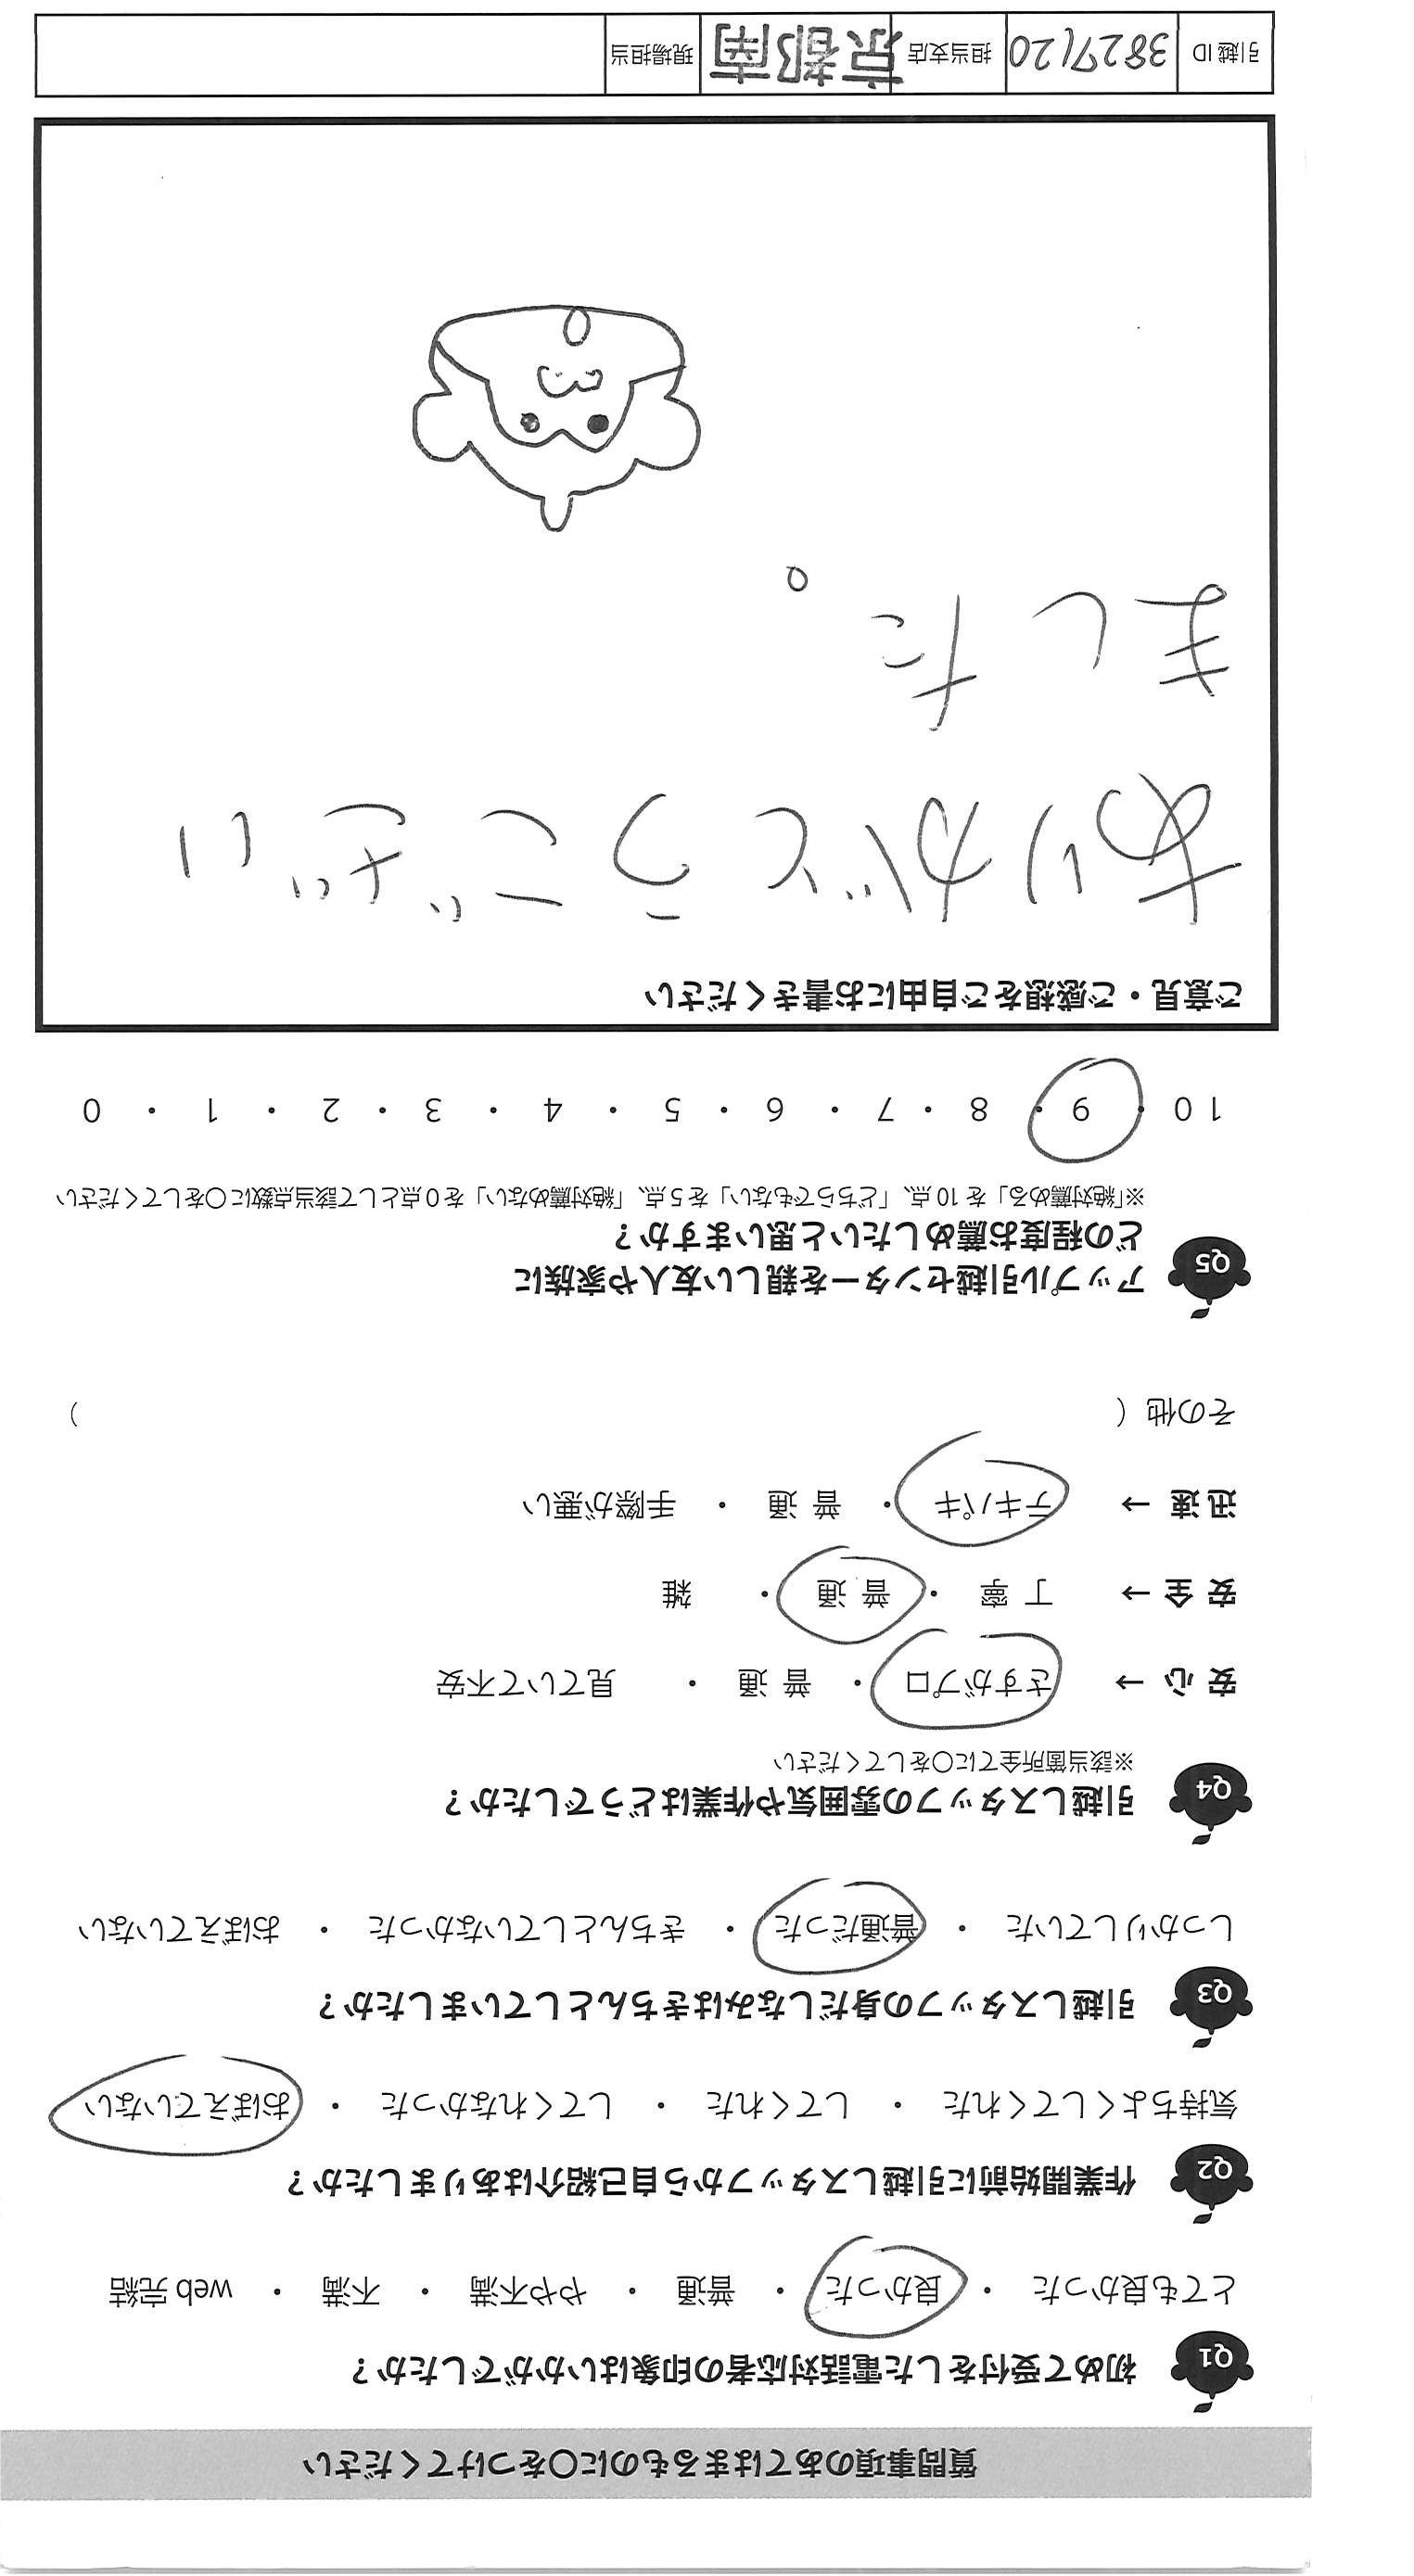 質問事項のあてはまるものに〇をつけてください
Q1 初めて受付をした電話対応者の印象はいかがでしたか？
とても良かった ・ 良かった ・ 普通 ・ やや不満 ・ 不満 ・ web 完結
Q2 作業開始前に引越しスタッフから自己紹介はありましたか？
気持ちよくしてくれた ・ してくれた ・ してくれなかった ・ おぼえていない
Q3 引越しスタッフの身だしなみはきちんとしていましたか？
しっかりしていた ・ 普通だった ・ きちんとしていなかった ・ おぼえていない
Q4 引越しスタッフの雰囲気や作業はどうでしたか？
※該当箇所全てに〇をしてください
安 心 → さすがプロ ・ 普 通 ・ 見ていて不安
安 全 → 丁 寧 ・ 普 通 ・ 雑
迅 速 → テキパキ ・ 普 通 ・ 手際が悪い
その他（ ）
Q5 アップル引越センターを親しい友人や家族に
どの程度お薦めしたいと思いますか？
※「絶対薦める」を 10 点、「どちらでもない」を 5 点、「絶対薦めない」を 0 点として該当点数に〇をしてください
10 ・ 9 ・ 8 ・ 7 ・ 6 ・ 5 ・ 4 ・ 3 ・ 2 ・ 1 ・ 0
ご意見・ご感想をご自由にお書きください
ありがとうござい
ました。
引越 ID 3827120 担当支店 京都南 現場担当